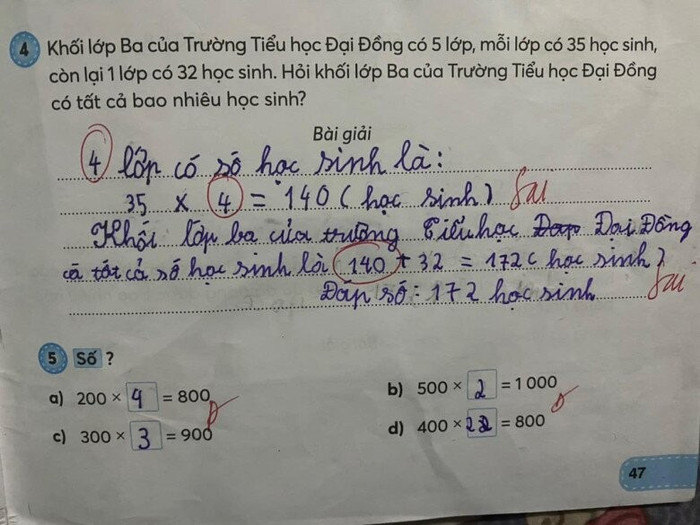 4 Khối lớp Ba của Trường Tiểu học Đại Đồng có 5 lớp, mỗi lớp có 35 học sinh,
còn lại 1 lớp có 32 học sinh. Hỏi khối lớp Ba của Trường Tiểu học Đại Đồng
có tất cả bao nhiêu học sinh?
Bài giải
4 lớp có số học sinh là:
35 x 4 = 140 (học sinh) Sai
Khối lớp ba của trường Tiểu học Đạp Đại Đồng
có tất cả số học sinh là 140 + 32 = 172 (học sinh)
Đáp số: 172 học sinh Sai
5 Số ?
a) 200 × 4 = 800
b) 500 × 2 = 1 000
c) 300 × 3 = 900
d) 400 × 2 = 800
47